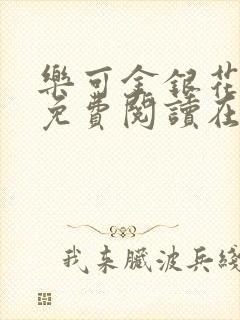 樂可金銀花
免費閱讀在
我来臓波兵綫